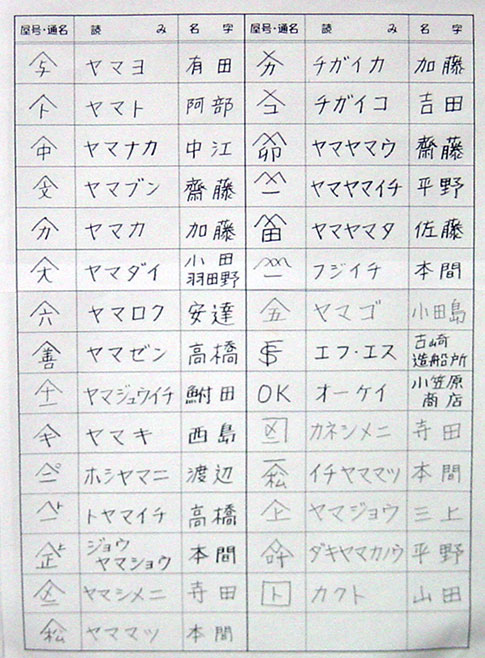 屋号・通名 読み 名字
ヤマヨ 有田
ヤマト 阿部
ヤマナカ 中江
ヤマブン 齋藤
ヤマカ 加藤
ヤマダイ 小田
羽田野
ヤマロク 安達
ヤマゼン 高橋
ヤマジュウイチ 鮒田
ヤマキ 西島
ホシヤマニ 渡辺
トヤマイチ 高橋
ジョウ
ヤマショウ 本間
ヤマシメニ 寺田
ヤママツ 本間
屋号・通名 読み 名字
チガイカ 加藤
チガイコ 吉田
ヤマヤマウ 齋藤
ヤマヤマイチ 平野
ヤマヤマタ 佐藤
フジイチ 本間
ヤマゴ 小田島
エフ・エス 吉崎
造船所
OK オーケイ 小笠原
商店
カネシメニ 寺田
イチヤママツ 本間
ヤマジョウ 三上
ダキヤマカノウ 平野
ト カクト 山田